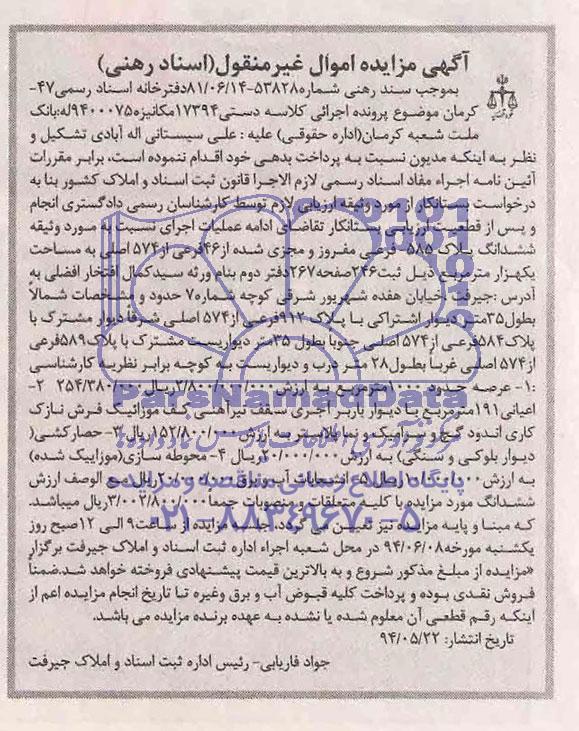 آگهی مزایده اموال غیرمنقول(اسناد رهنی)
بموجب سند رهنی شماره۵۳۸۲۸-۸۱/۰۶/۱۴دفترخانه اسناد رسمی۴۷-
کرمان موضوع پرونده اجرائی کلاسه دستی۱۷۳۹۴مکانیزه۹۴۰۰۰۷۵له:بانک
ملت شعبه کرمان(اداره حقوقی) علیه : علی سیستانی اله آبادی تشکیل و
نظر به اینکه مدیون نسبت به پرداخت بدهی خود اقدام ننموده است، برابر مقررات
آئین نامه اجراء مفاد اسناد رسمی لازم الاجرا قانون ثبت اسناد و املاک کشور بنا به
درخواست بستانکار از مورد وثیقه ارزیابی لازم توسط کارشناسان رسمی دادگستری انجام
و پس از قطعیت ارزیابی بستانکار تقاضای ادامه عملیات اجرای نسبت به مورد وثیقه
ششدانگ پلاک ۵۸۵- فرعی مفروز و مجزی شده از۴۶فرعی از۵۷۴ اصلی به مساحت
یکهزار مترمربع ذیل ثبت۲۴۶صفحه۲۶۷دفتر دوم بنام ورثه سیدکمال افتخار افضلی به
آدرس :جیرفت ،خیابان هفده شهریور شرقی کوچه شماره۷ حدود و مشخصات شمالاً
بطول۳۵متر دیوار اشتراکی با پلاک۹۱۲فرعی از۵۷۴ اصلی شرقاً دیوار مشترک با
پلاک۵۸۴فرعی از۵۷۴ اصلی جنوباً بطول ۳۵متر دیواریست مشترک با پلاک۵۸۹فرعی
از۵۷۴ اصلی غرباً بطول۲۸ متر درب و دیواریست به کوچه برابر نظریه کارشناسی
:۱- عرصه حدود ۱۰۰۰مترمربع به ارزش ۲/۸۰۰/۰۰۰/۰۰۰ریال ۲-
اعیانی۱۹۱مترمربع با دیوار باربر آجری سقف تیرآهنی کف موزائیک فرش نازک
کاری اندود گچ و سرامیک و نما پلاستر به ارزش ۱۵۲/۸۰۰/۰۰۰ریال ۳- حصارکشی(
دیوار بلوکی و سنگی) به ارزش ۲۰/۰۰۰/۰۰۰ریال ۴- محوطه سازی(موزاییک شده)
به ارزش ریال ۵- انشعابات آب و برق ریال مع الوصف ارزش
ششدانگ مورد مزایده با کلیه متعلقات و منصوبات جمعاً۳/۰۰۲/۸۰۰/۰۰۰ریال میباشد.
که مبنا و پایه مزایده نیز تعیین می گردد، جلسه مزایده از ساعت۹ الی ۱۲صبح روز
یکشنبه مورخه۹۴/۰۶/۰۸ در محل شعبه اجراء اداره ثبت اسناد و املاک جیرفت برگزار
«مزایده از مبلغ مذکور شروع و به بالاترین قیمت پیشنهادی فروخته خواهد شد.ضمناً
فروش نقدی بوده و پرداخت کلیه قبوض آب و برق وغیره تا تاریخ انجام مزایده اعم از
اینکه رقم قطعی آن معلوم شده یا نشده به عهده برنده مزایده می باشد.
تاریخ انتشار: ۹۴/۰۵/۲۲
جواد فاریابی- رئیس اداره ثبت اسناد و املاک جیرفت
ParsNamadData
پایگاه اطلاع رسانی مناقصه و مزایده
۰۲۱-۸۸۳۴۹۶۷۰-۵